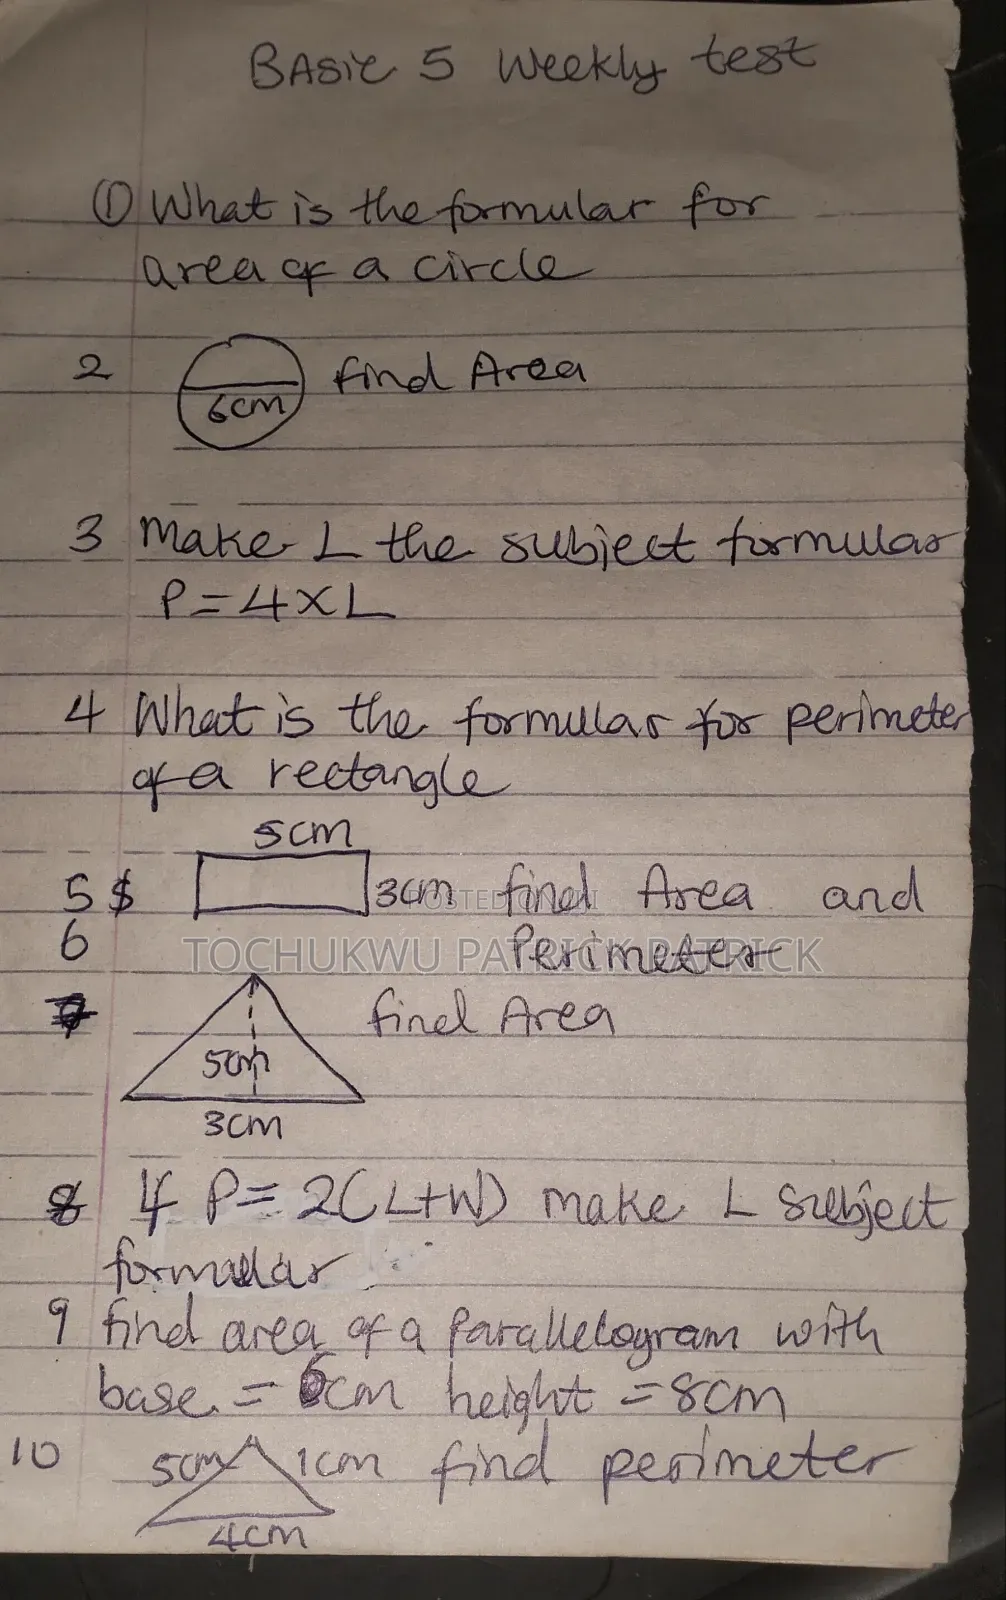 BASIC 5 Weekly test
① What is the formular for
area of a circle
2 find Area
6cm
3 Make L the subject formular
P=4×L
4 What is the formular for perimeter
of a rectangle
5cm
5 $ 3cm find Area and
6 Perimeter
TOCHUKWU PATRICK PATRICK
7 find Area
5cm
3cm
8 If P=2(L+W) make L subject
formular
9 find area of a parallelogram with
base = 6cm height =8cm
10 5cm 1cm find perimeter
4cm